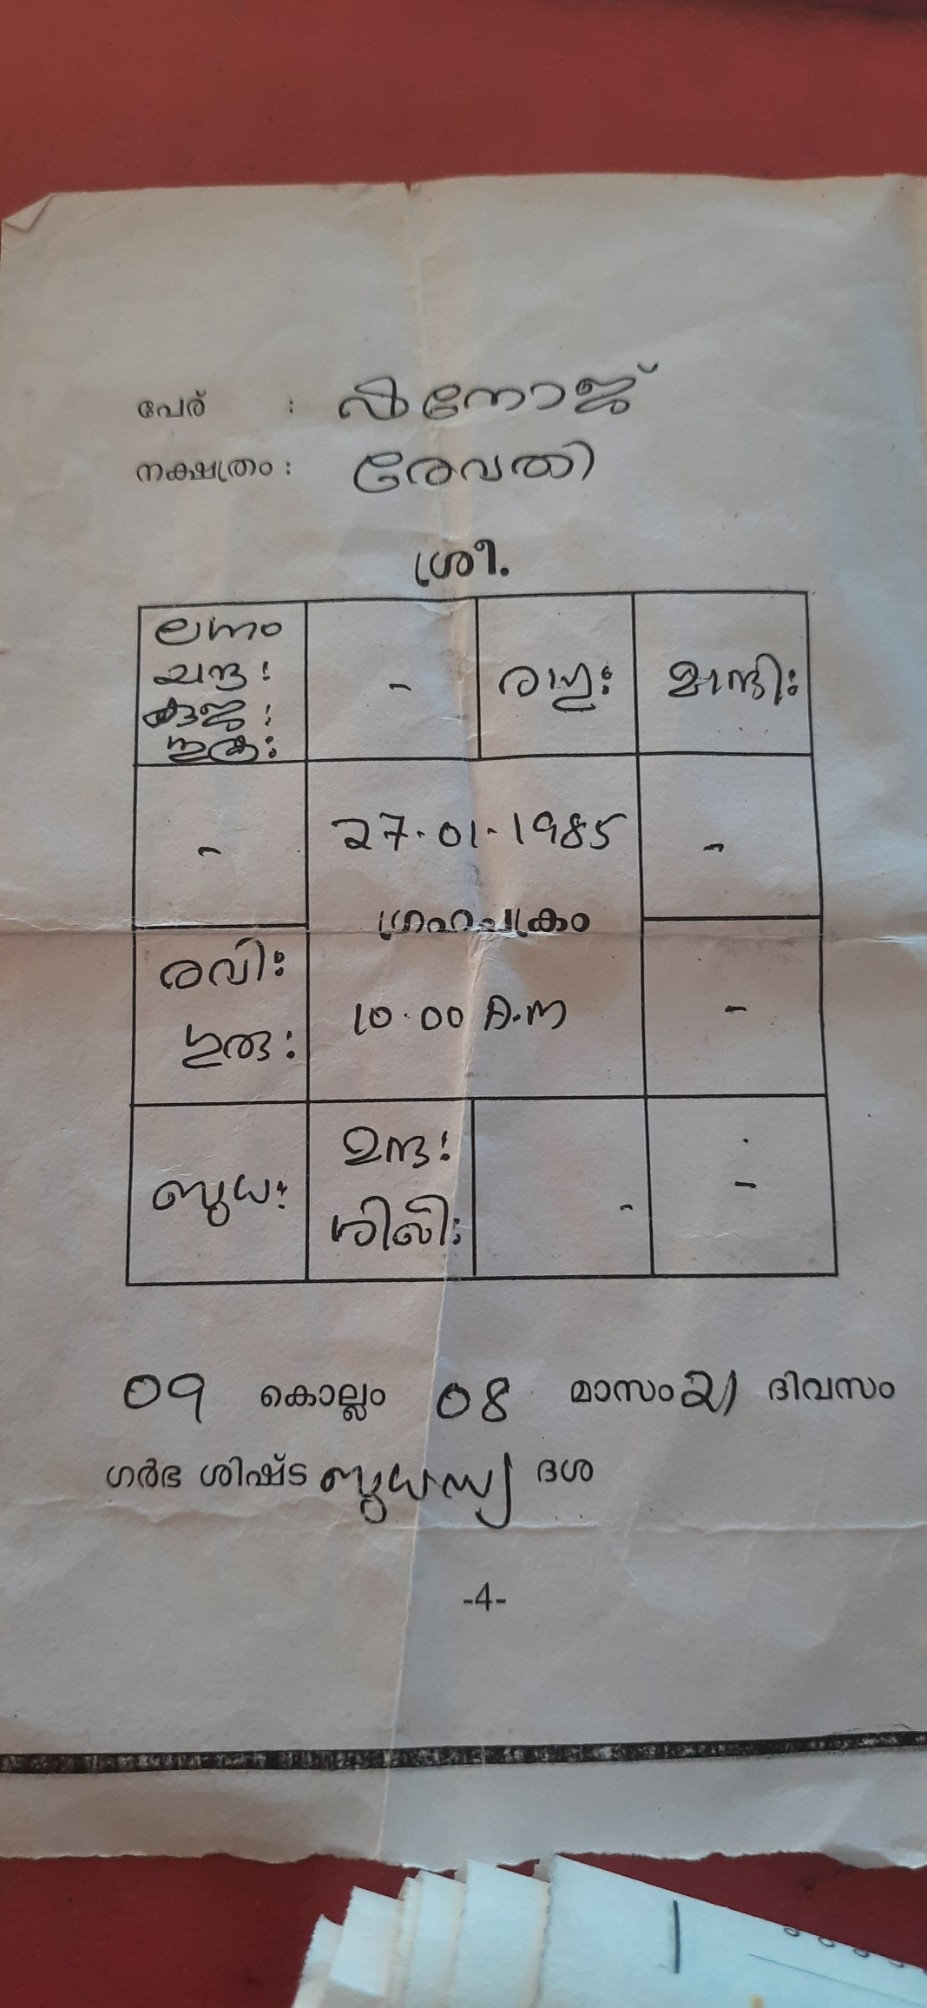 പേര് : ഷിനോജ്
നക്ഷത്രം : രേവതി
ശ്രീ.
ലഗ്നം
ചന്ദ്ര:
കുജ:
ശുക്ര:
-
രാഹു:
മാന്ദി:
-
27-01-1985
-
ഗ്രഹചക്രം
രവി:
ഗുരു:
10.00 A.M
-
ബുധ:
മന്ദ:
ശിഖി:
-
-
09 കൊല്ലം 08 മാസം 21 ദിവസം
ഗർഭ ശിഷ്ട ബുധസ്യ ദശ
-4-